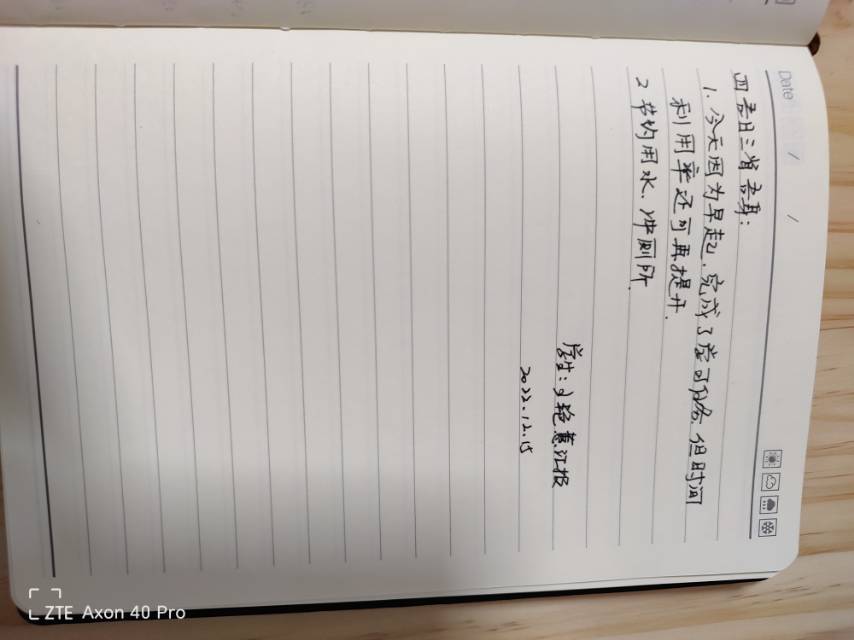 Date / /
四 吾日三省吾身:
1. 今天因为早起,完成了学习任务,但时间
利用率还可再提升.
2 节约用水、冲厕所.
学生: 艳蕙汇报
2022.12.15
ZTE Axon 40 Pro